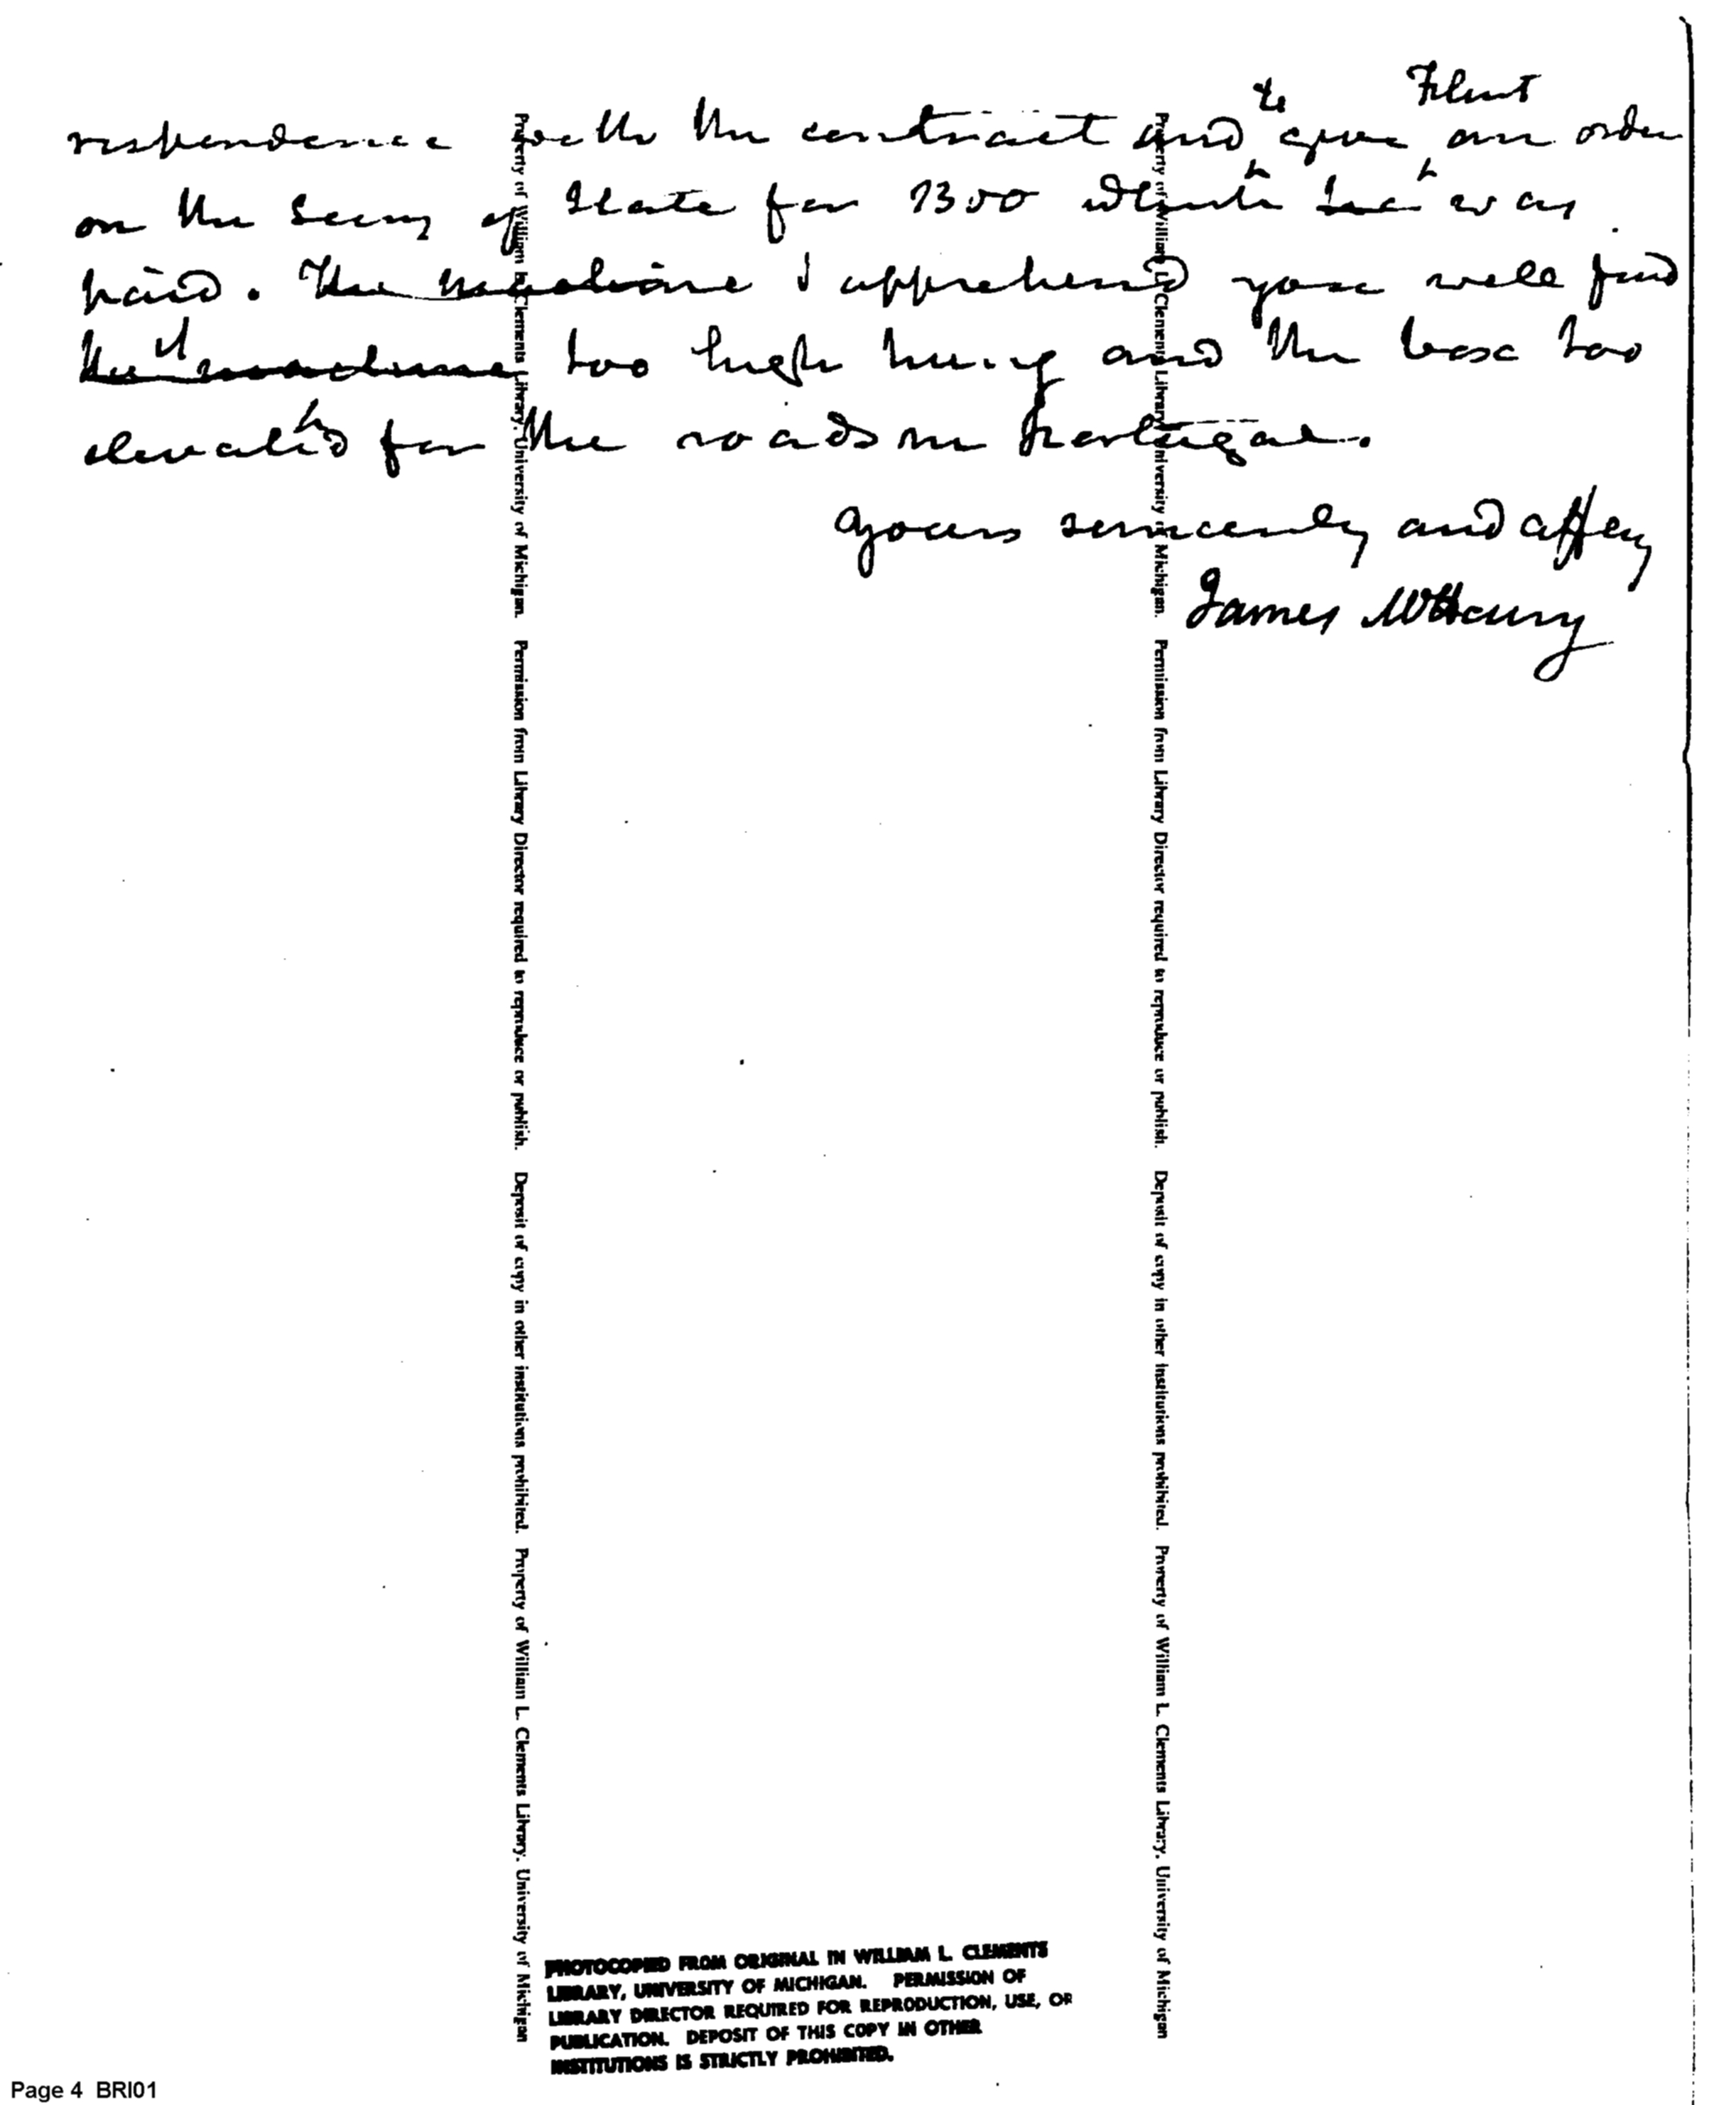 respondence with the contract and to give Flint an order
on the Secry of State for 1300 which he was
paid. The machine I apprehend you will find
the machine too high hung and the box too
elevated for the roads in Portugal.
yours sincerely and affey
James McHenry
Property of William L. Clements Library, University of Michigan. Permission from Library Director required to reproduce or publish. Deposit of copy in other institutions prohibited. Property of William L. Clements Library, University of Michigan
Property of William L. Clements Library, University of Michigan. Permission from Library Director required to reproduce or publish. Deposit of copy in other institutions prohibited. Property of William L. Clements Library, University of Michigan
PHOTOCOPIED FROM ORIGINAL IN WILLIAM L. CLEMENTS
LIBRARY, UNIVERSITY OF MICHIGAN. PERMISSION OF
LIBRARY DIRECTOR REQUIRED FOR REPRODUCTION, USE, OR
PUBLICATION. DEPOSIT OF THIS COPY IN OTHER
INSTITUTIONS IS STRICTLY PROHIBITED.
Page 4 BRI01